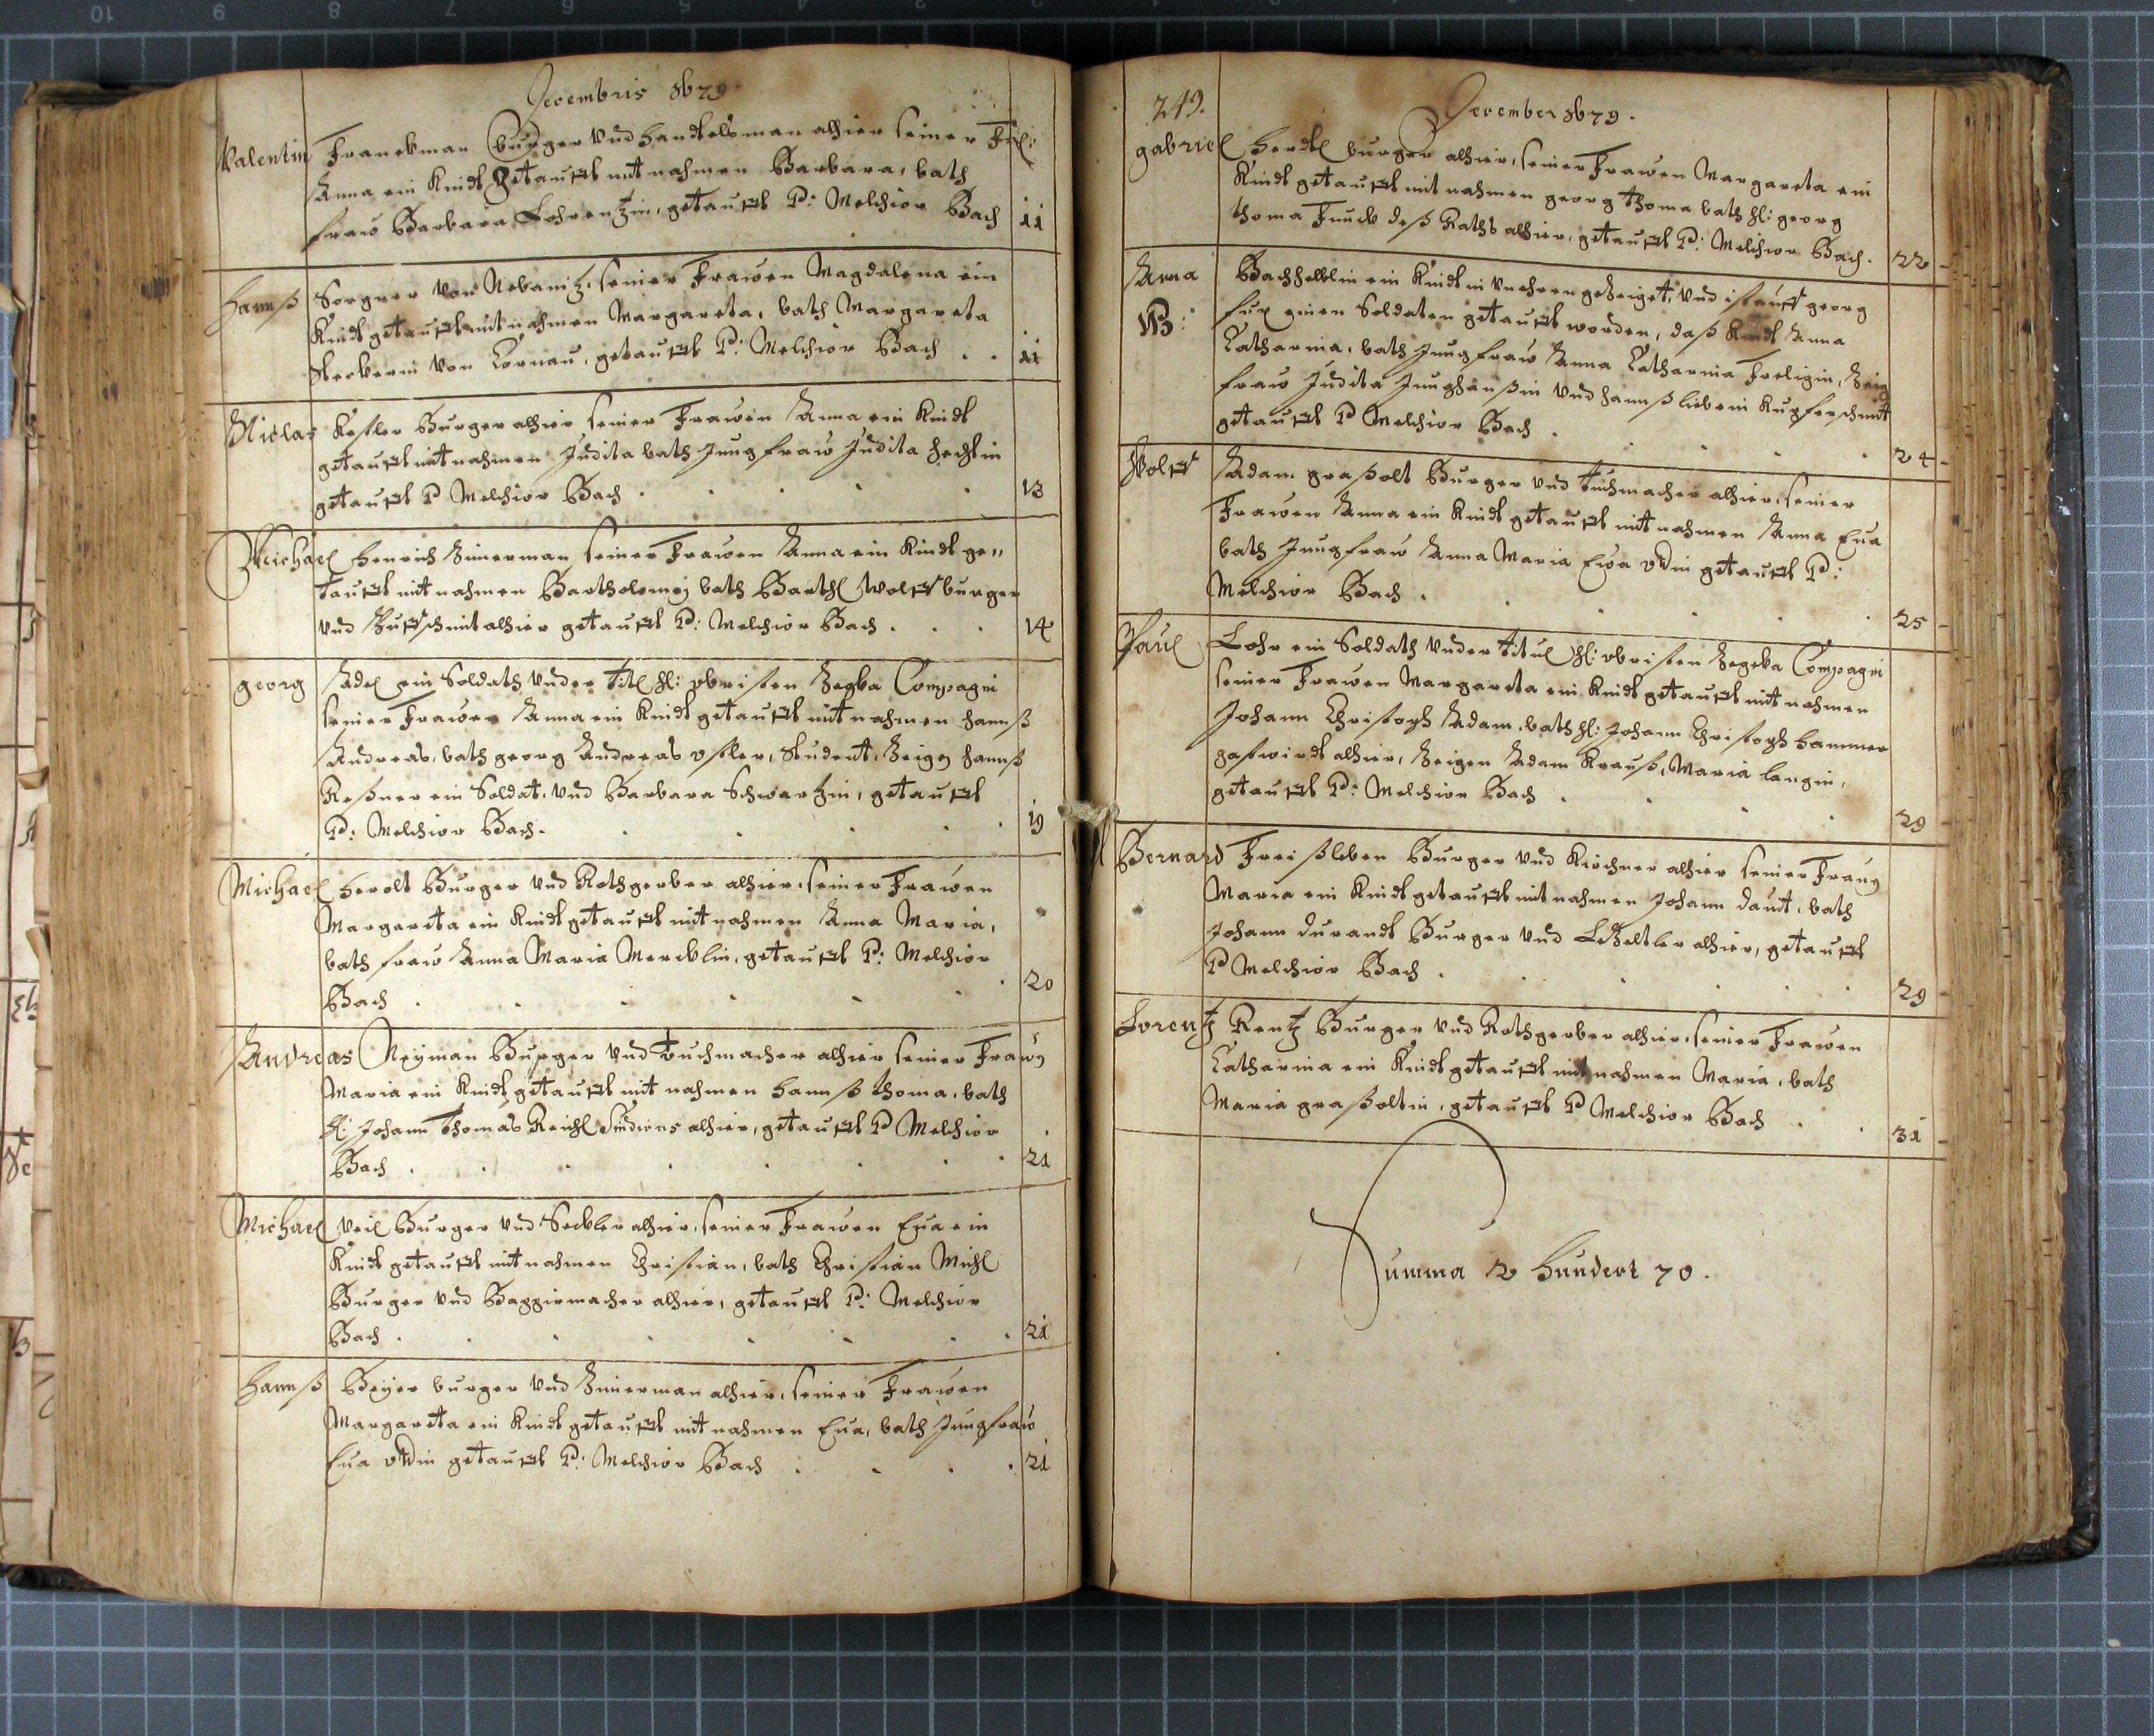 Decembris 1679
Valentin Franckman Burger und Handelsman alhier seiner
Anna ein Kindt getaufft mit nahmen Barbara, path
fraw Barbara Lohrentzin, getaufft P: Melchior Bach 11
Hannß Sorgner von Nebanitz, seiner Frawen Magdalena ein
Kindt getaufft mit nahmen Margareta, path Margareta
von Kornau, getaufft P: Melchior Bach 11
Niclas Keßler Burger alhier seiner Frawen Anna ein Kindt
getaufft mit nahmen Judita path Jungfraw Judita Hechtin
getaufft P Melchior Bach 13
Michael Henrich Zimerman seiner Frawen Anna ein Kindt ge„
taufft mit nahmen Bartholomej path Barthl Wolff burger
und alhier getaufft P: Melchior Bach 14
georg Adel ein Soldath under titl Hl: obristen Zegka Compagni
seiner Frawen Anna ein Kindt getaufft mit nahmen Hannß
Andreas, path georg Andreas Student, Zeigen Hannß
Reßner ein Soldat, und Barbara Schwartzin, getaufft
P: Melchior Bach. 19
Michael Herolt Burger und Rothgerber alhier, seiner Frawen
Margareta ein Kindt getaufft mit nahmen Anna Maria,
path fraw Anna Maria Mercklin, getaufft P: Melchior
Bach 20
Andreas Neyman Burger und Tuchmacher alhier seiner Frawen
Maria ein Kindt getaufft mit nahmen Hannß Thoma, path
Hl: Johann Thomas Reichl Sindicus alhier, getaufft P Melchior
Bach 21
Michael Veil Burger und Seckler alhier, seiner Frawen Eua ein
Kindt getaufft mit nahmen Christian, path Christian Michl
Burger und Bappirmacher alhier, getaufft P: Melchior
Bach 21
Hannß Beyer burger und Zimerman alhier, seiner Frawen
Margareta ein Kindt getaufft mit nahmen Eua, path Jungfraw
Eua getaufft P: Melchior Bach 21
249.
December 1679.
gabriel Herdtl burger alhier, seiner Frawen Margareta ein
Kindt getaufft mit nahmen georg Thoma path Hl: georg
Thoma Funck deß Raths alhier, getaufft P: Melchior Bach. 22
Anna Bachhelblin ein Kindt in unehren gezeiget, und ist auff georg
NB: einen Soldaten getaufft worden, daß Kindt Anna
Catharina, path Jungfraw Anna Catharina Freligin, Zeig
fraw Judita Junghanßin und Hannß Kupferschmit
getaufft P Melchior Bach 24
Wolff Adam graßolt Burger und Tuchmacher alhier, seiner
Frawen Anna ein Kindt getaufft mit nahmen Anna Eua
path Jungfraw Anna Maria Eua getaufft P:
Melchior Bach 25
Paul Lohr ein Soldath under titul Hl: obristen Zegka Compagni
seiner Frawen Margareta ein Kindt getaufft mit nahmen
Johann Christoph Adam, path Hl: Johann Christoph Hammer
gastwirdt alhier, Zeigen Adam Krauß, Maria Langin,
getaufft P: Melchior Bach 29
Bernard Freißleben Burger und Kirchner alhier seiner Frawen
Maria ein Kindt getaufft mit nahmen Johann, path
Johann Durandt Burger und Lezeltler alhier, getaufft
P Melchior Bach 29
Lorentz Rentz Burger und Rothgerber alhier, seiner Frawen
Catharina ein Kindt getaufft mit nahmen Maria, path
Maria graßoltin, getaufft P Melchior Bach 31
Summa 2 Hundert 70.